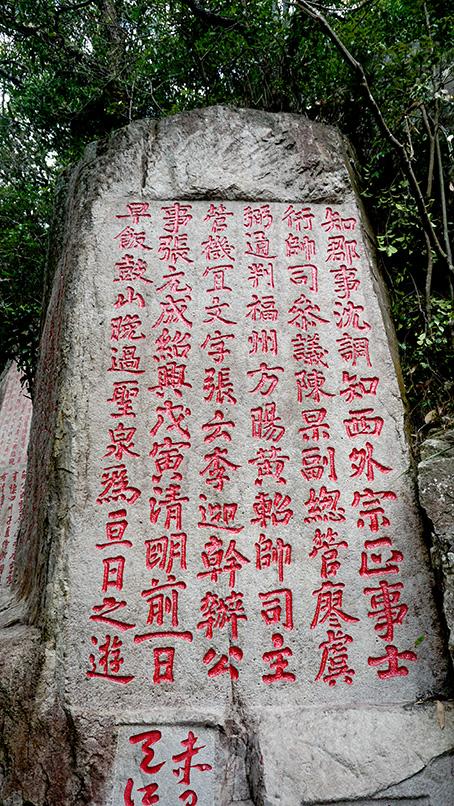 知郡事沈調知西外宗正事士
衎帥司叅議陳杲副總管廖虞
弼通判福州方晹黄軺帥司主
管機冝文字張云李迎幹辦公
事張元成紹興戊寅清明前一日
早飯鼓山晚過聖泉爲亘日之遊